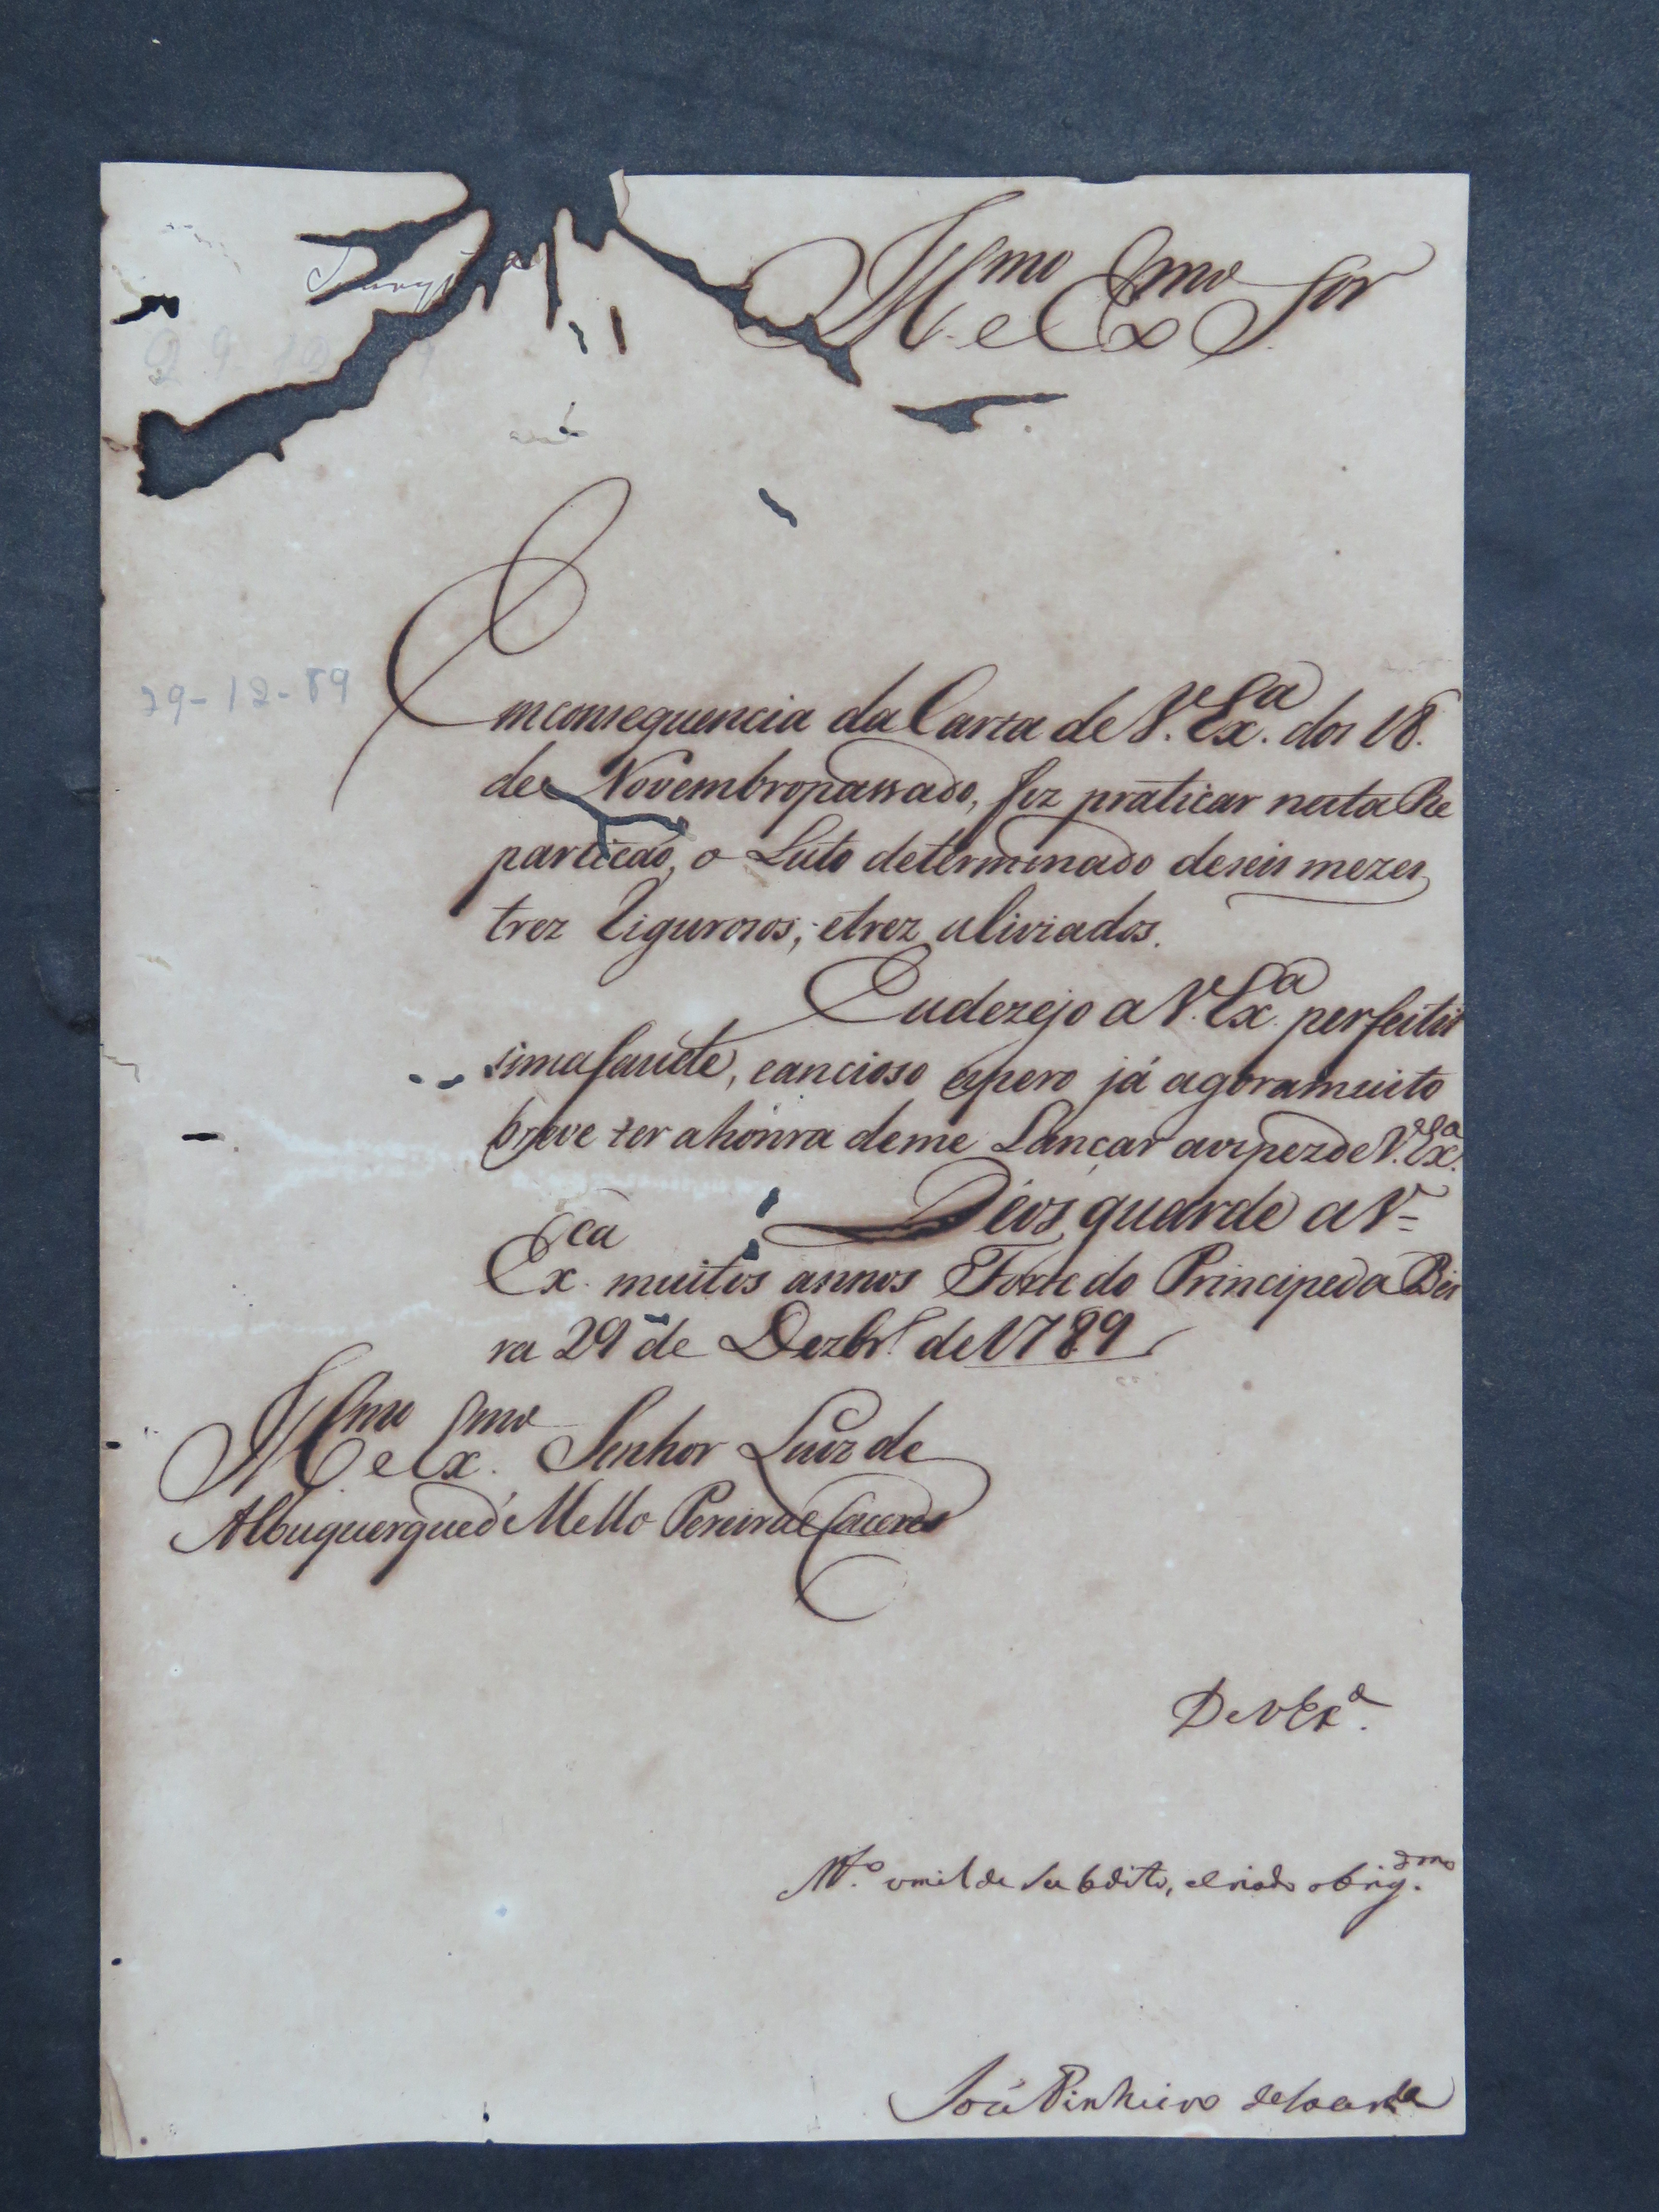 Ill.mo e Ex.mo Snr
29-12-89
Em consequencia da Carta de V. Ex.a dos 18.
de Novembro passado, fiz praticar nesta Re
partição, o Luto determinado de seis mezes
trez rigurosos, e trez aliviados.
Eu dezejo a V. Ex.a perfeitis
sima saude, e ancioso espero já agora muito
breve ter a honra de me Lançar aos pez de V. Ex.a
Deos guarde a V=
Ex.ca muitos annos Forte do Principe da Bei
ra 29 de Dezbr.o de 1789
Ill.mo e Ex.mo Senhor Luiz de
Albuquerque d' Mello Pereira e Caceres
De V Ex.a
M.to umilde Subdito, e criado obrig.dmo
José Pinheiro de Lacerda